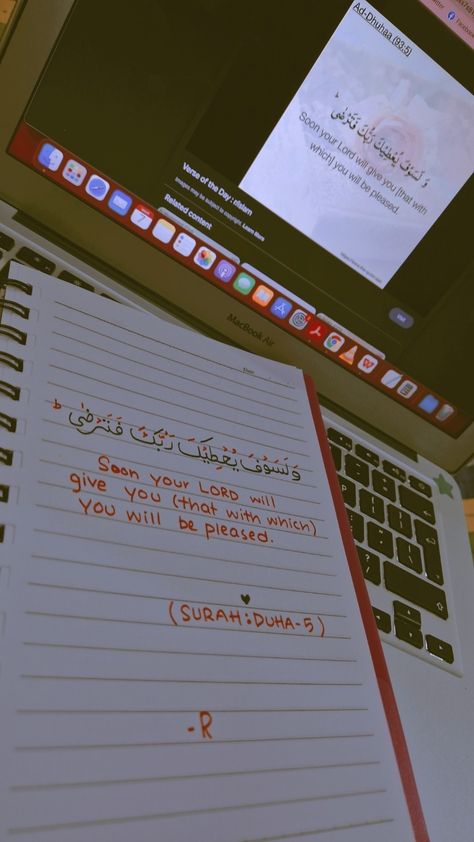 Ad-Dhuhaa (93:5)
وَ لَسَوْفَ يُعْطِيْكَ رَبُّكَ فَتَرْضٰىؕ
Soon your Lord will give you [that with
which] you will be pleased.
Verse of the Day : r/islam
Images may be subject to copyright. Learn More
Related content
MacBook Air
Date
وَلَسَوْفَ يُعْطِيْكَ رَبُّكَ فَتَرْضٰىؕ
Soon your LORD will
give you (that with which)
you will be pleased.
(SURAH:DUHA-5)
-R